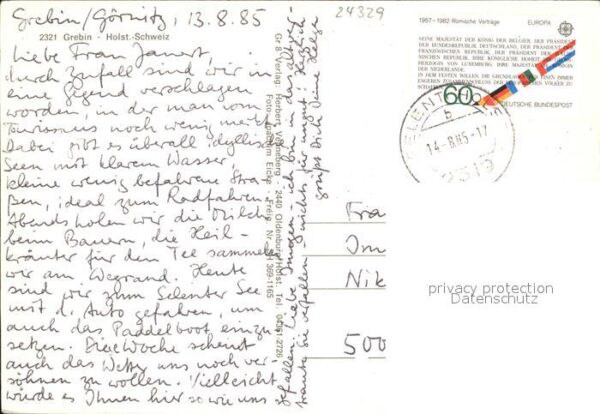 Grebin/Görnitz, 13.8.85
24329
2321 Grebin · Holst.-Schweiz
Liebe Frau Janert,
durch Zufall sind wir in
eine Gegend verschlagen
worden, in der man vom
Tourismus noch wenig merkt.
Dabei gibt es überall idyllische
Seen mit klarem Wasser,
kleine wenig befahrene Stra-
ßen, ideal zum Radfahren.
Abends holen wir die Milch
beim Bauern, die Heil-
kräuter für den Tee sammeln
wir am Wegrand. Heute
sind wir zum Selenter See
mit d. Auto gefahren, um
auch das Paddelboot einzu-
setzen. Diese Woche scheint
auch das Wetter uns noch ver-
söhnen zu wollen. Vielleicht
würde es Ihnen hier so wie uns
gefallen. Liebe Imogen, ich bin in das altver-
traute Du verfallen, nichts für ungut! Herzlich
grüßt Dich Deine Helga
GF 8 Verlag Herbert Vehneberg · 2440 Oldenburg/Holst. Tel. 04361-2728
Foto: Joachim Eicke · Freig. Nr. SH 369-1165
1957–1982 Römische Verträge
EUROPA
SEINE MAJESTÄT DER KÖNIG DER BELGIER, DER PRÄSIDENT
DER BUNDESREPUBLIK DEUTSCHLAND, DER PRÄSIDENT DER
FRANZÖSISCHEN REPUBLIK, DER PRÄSIDENT DER ITALIE-
NISCHEN REPUBLIK, IHRE KÖNIGLICHE HOHEIT
HERZOGIN VON LUXEMBURG, IHRE MAJESTÄT
DER NIEDERLANDE
IN DEM FESTEN WILLEN, DIE GRUNDLAGEN EINEN IMMER
ENGEREN ZUSAMMENSCHLUSS DER EUROPÄISCHEN VÖLKER ZU
SCHAFFEN
60
DEUTSCHE BUNDESPOST
SELENT
b
14-8.85-17
2319
Fra
Im
Nik
500
privacy protection
Datenschutz